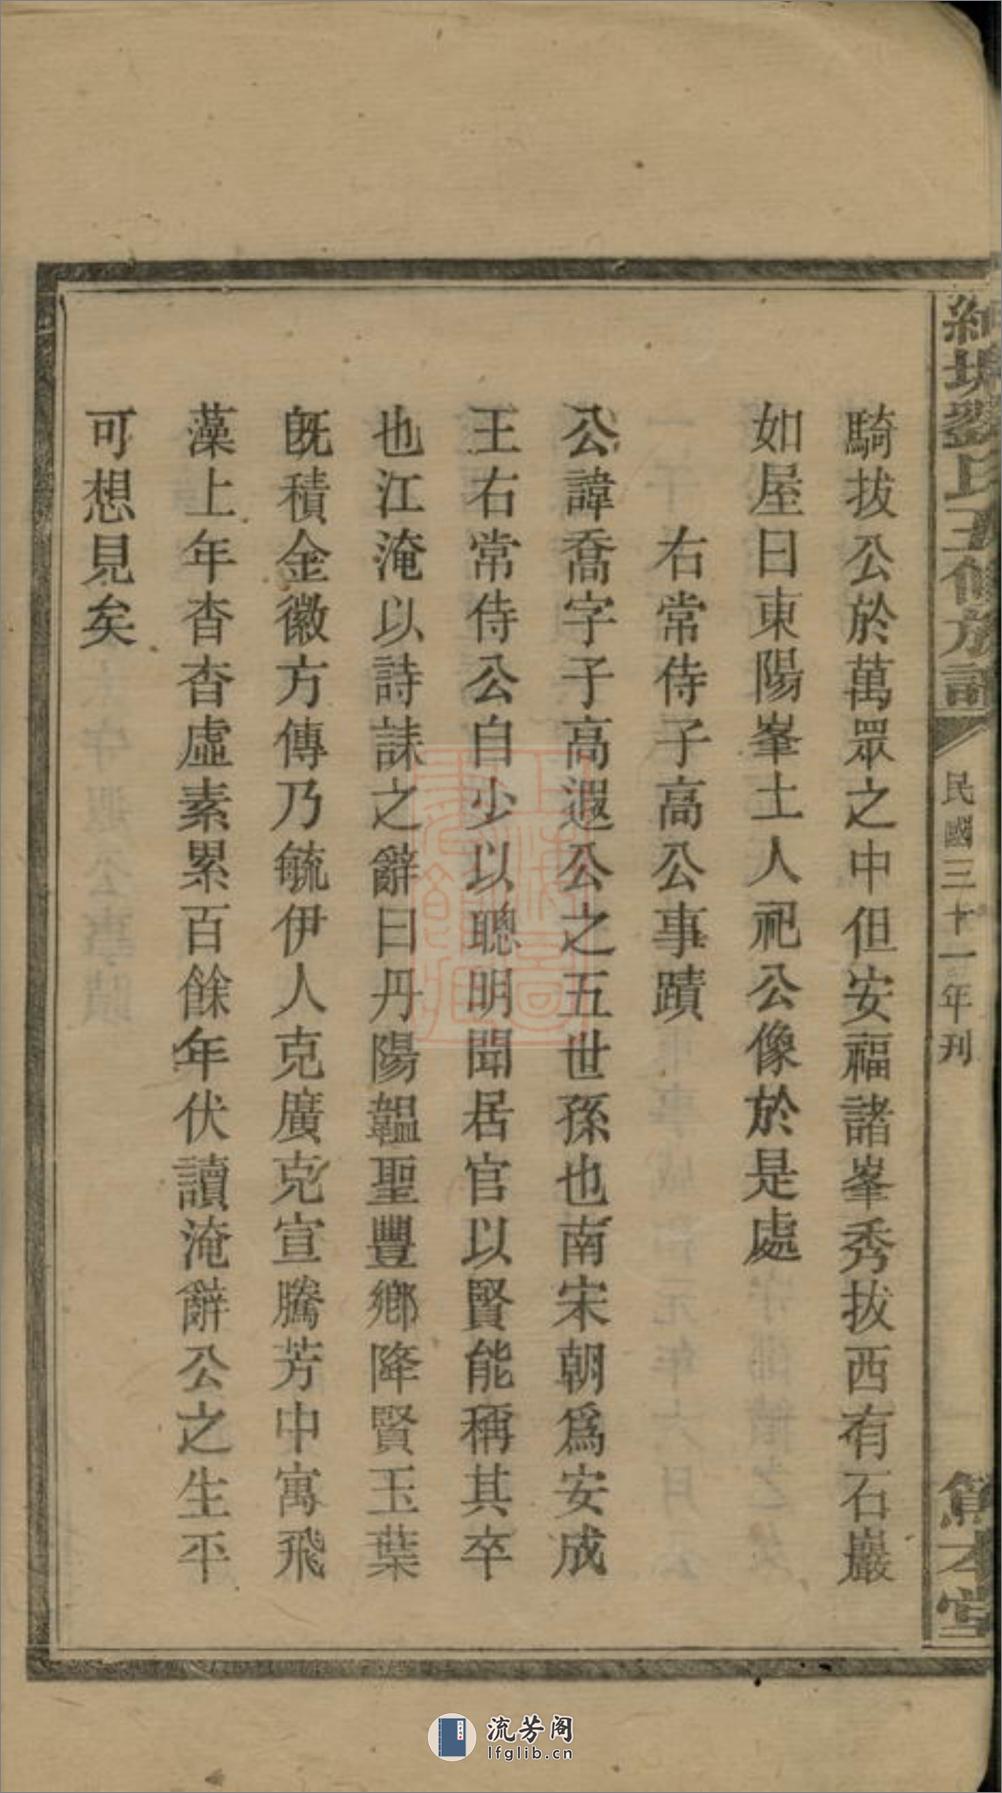 劉氏五修族譜
民國三十一年刊
本堂
騎拔公於萬眾之中但安福諸峯秀拔西有石巖
如屋曰東陽峯土人祀公像於是處
右常侍子高公事蹟
公諱喬字子高遐公之五世孫也南宋朝爲安成
王右常侍公自少以聰明聞居官以賢能稱其卒
也江淹以詩誄之辭曰丹陽韞聖豐鄉降賢玉葉
旣積金徽方傳乃毓伊人克廣克宣騰芳中寓飛
藻上年杳杳虛素累百餘年伏讀淹辭公之生平
可想見矣
流芳阁
lfglib.cn